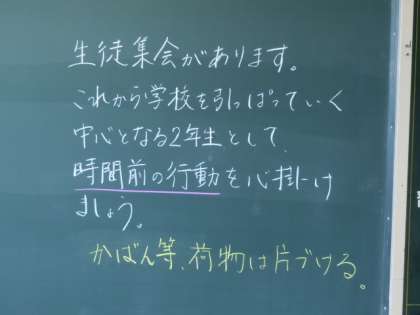 生徒集会があります。
これから学校を引っぱっていく
中心となる2年生として、
時間前の行動を心掛け
ましょう。
かばん等、荷物は片づける。